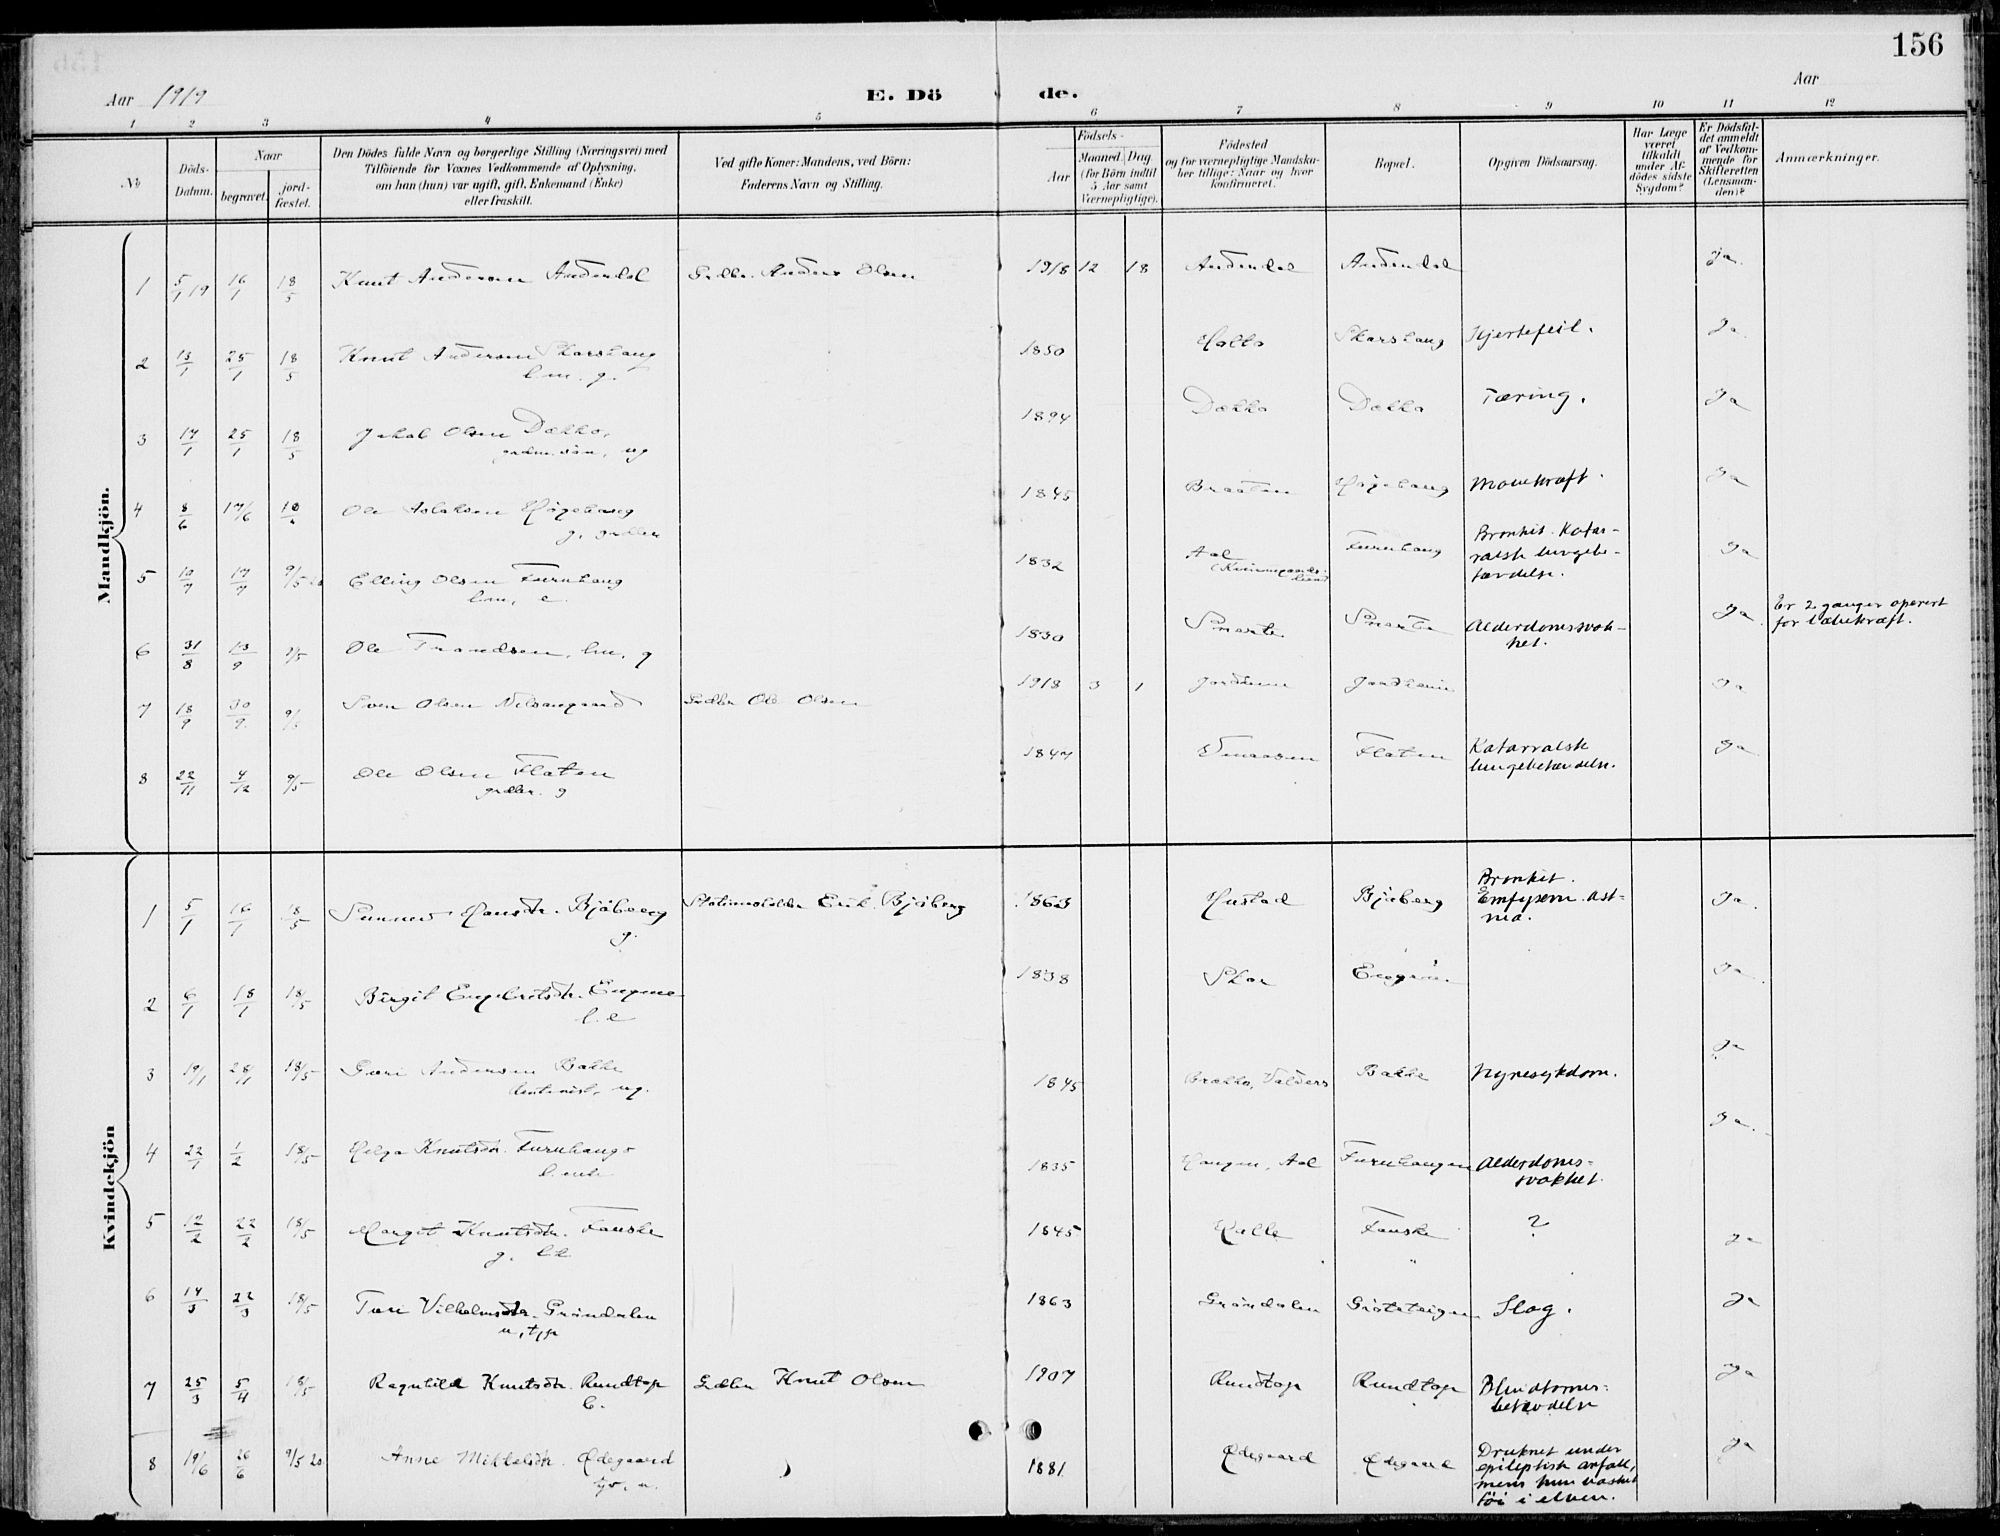 156
Aar 1919
E. Dö de.
Aar
1 2 3 4 5 6 7 8 9 10 11 12
No
Döds-
Datum.
Naar
begravet.
jord-
fæstet.
Den Dödes fulde Navn og borgerlige Stilling (Næringsvei) med
Tilföiende for Voxnes Vedkommende af Oplysning,
om han (hun) var ugift, gift, Enkemand (Enke)
eller fraskilt.
Ved gifte Koner: Mandens, ved Börn:
Faderens Navn og Stilling.
Födsels-
Aar
Maaned. Dag.
(for Börn indtil
5 Aar samt
Værnepligtige).
Födested
og for værnepligtige Mandska-
ber tillige: Naar og hvor
konfirmeret.
Bopæl.
Opgiven Dödsaarsag.
Har Læge
været
tilkaldt
under Af-
dödes sidste
Sygdom?
Er Dödsfal-
det anmeldt
af Vedkom-
mende for
Skifteretten
(Lensman-
den)?
Anmærkninger.
Mandkjön.
1 5/1 19 16/1 18/5 Knut Andersen Andendal Gdbr. Anders Olsen 1918 12 18 Andendal Andendal ja.
2 13/1 25/1 18/5 Knut Andersen Skarshaug 1850 Holto Skarshaug Hjertefeil. Ja.
hm. g.
3 17/1 25/1 18/5 Jakob Olsen Dokko, 1894 Dokko Dokko Tæring. Ja
gaardm. sön, ug
4 8/6 17/6 Ole Aslaksen Högehaug 1845 Braaten Högehaug Mavekræft. Ja
g. gaardbr
5 10/7 17/7 9/5 20 Elling Olsen Furuhaug 1832 Aal Furuhaug Bronkit. Katar-
ralsk lungebe-
tændelse. Ja
hm, e.
6 31/8 13/9 9/5 Ole Trondsen, hm, g 1830 Snerte Snerte Alderdomssvak-
het. Ja. Er 2 ganger operert
for læbekræft.
7 18/9 30/9 9/5 Sven Olsen Nilsengaard Gdbr Ole Olsen 1918 3 1 Jordheim Jordheim Ja
8 22/11 4/12 9/5 Ole Olsen Flaten 1847 Flaten Katarralsk
lungebetændelse. Ja
gaardbr. g
Kvindekjön
1 5/1 16/1 18/5 Sunnev Hansdtr. Bjöberg Stationsholder Erik Bjöberg 1863 Hustad Bjöberg Bronkit.
Emfysem. Ast-
ma. Ja.
g.
2 6/1 18/1 18/5 Birgit Engebretsdtr. 1838 Skar Ja.
l. e
3 19/1 28/1 18/5 Guri Andersen Bakke 1845 Brekko, Valders Bakke Nyresykdom. Ja
ug.
4 22/1 1/2 18/5 Helga Knutsdtr. Furuhaug 1835 Haugen, Aal Furuhaugen Alderdoms-
svakhet. Ja.
l. enke
5 12/2 22/2 18/5 Margit Knutsdtr. Fauske 1845 Kulle Fauske ? Ja
g.
6 14/3 22/3 18/5 Turi Vilhelmsdtr. Gröndalen 1863 Gröndalen Gröteteigen Slag. Ja
u, tje
7 25/3 5/4 18/5 Ragnhild Knutsdtr. Rundtop Gdbr Knut Olsen 1907 Rundtop Rundtop Blindtarms-
betændelse Ja
b.
8 19/6 26/6 9/5 20 Anne Mikkelsdtr. Ødegaard 1881 Ødegaard Ødegaard Druknet under
epileptisk anfall,
mens hun vasket
töi i elven. Ja
tje, u.